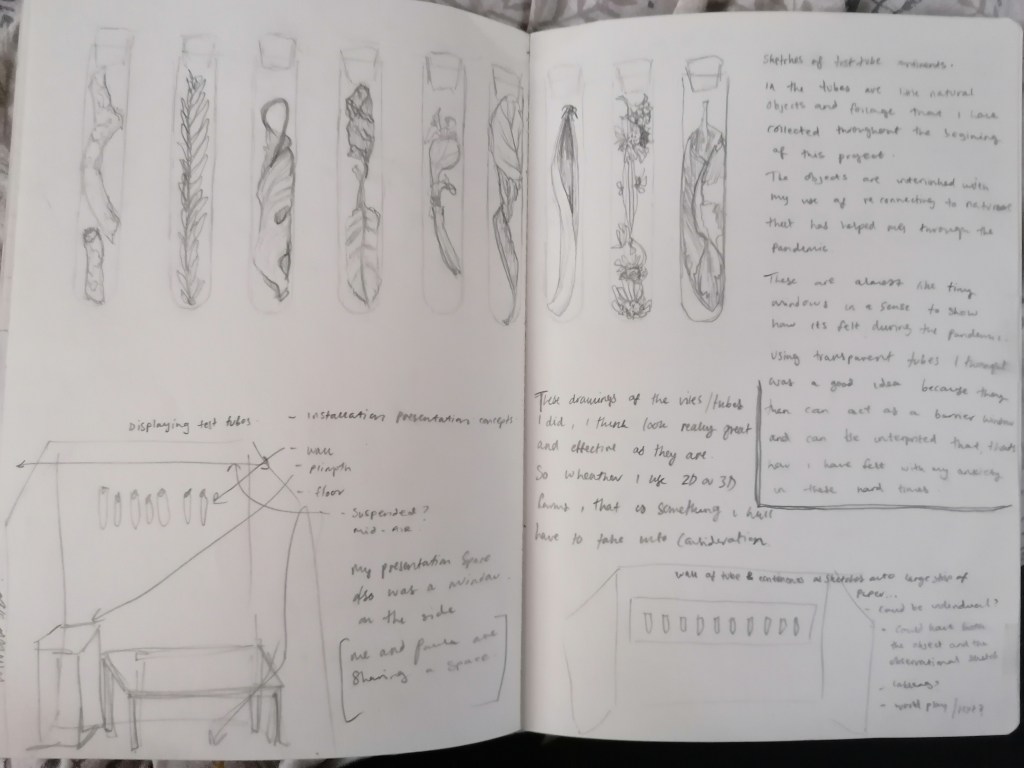 Displaying test tubes
- installation presentation concepts
- wall
- plinpth
- floor
- Suspended?
mid-air
my presentation space
also was a window
on the side
me and Paula are
Sharing a Space
Sketches of test tube
In the tubes are natural
objects and foliage I have
collected throughout the begining
of this project.
The objects are with
my use of reconnecting to
that has helped me through the
pandemic
These are almost like tiny
windows in a sense to show
how its felt during the pandemic.
Using transparent tubes I thought
was a good idea because they
then can act as a barrier window
and can be interprited that, thats
how i have felt with my anxiety
in these hard times
These drawings of the tubes
I did, I think look really great
and effective as they are.
So wheather I use 2D or 3D
forms, that is something i will
have to take into Consideration
wall of tube & as sketches onto large strip of
Paper...
- Could be individual?
- Could have both
the object and the
observational sketch
- word play